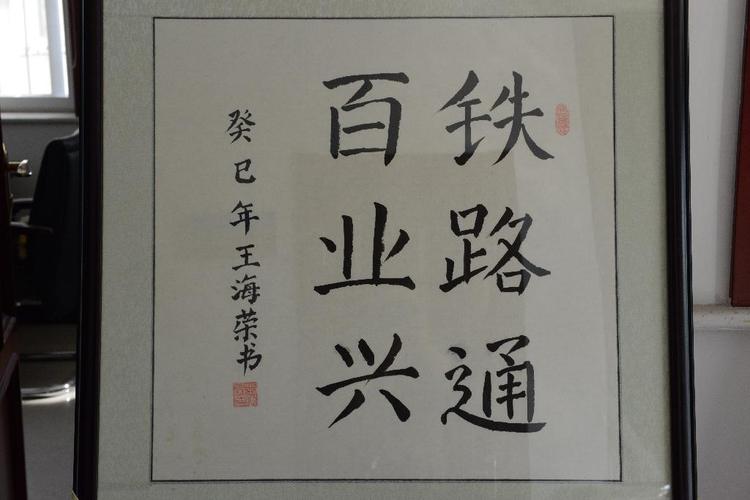 铁路通
百业兴
癸巳年王海荣书